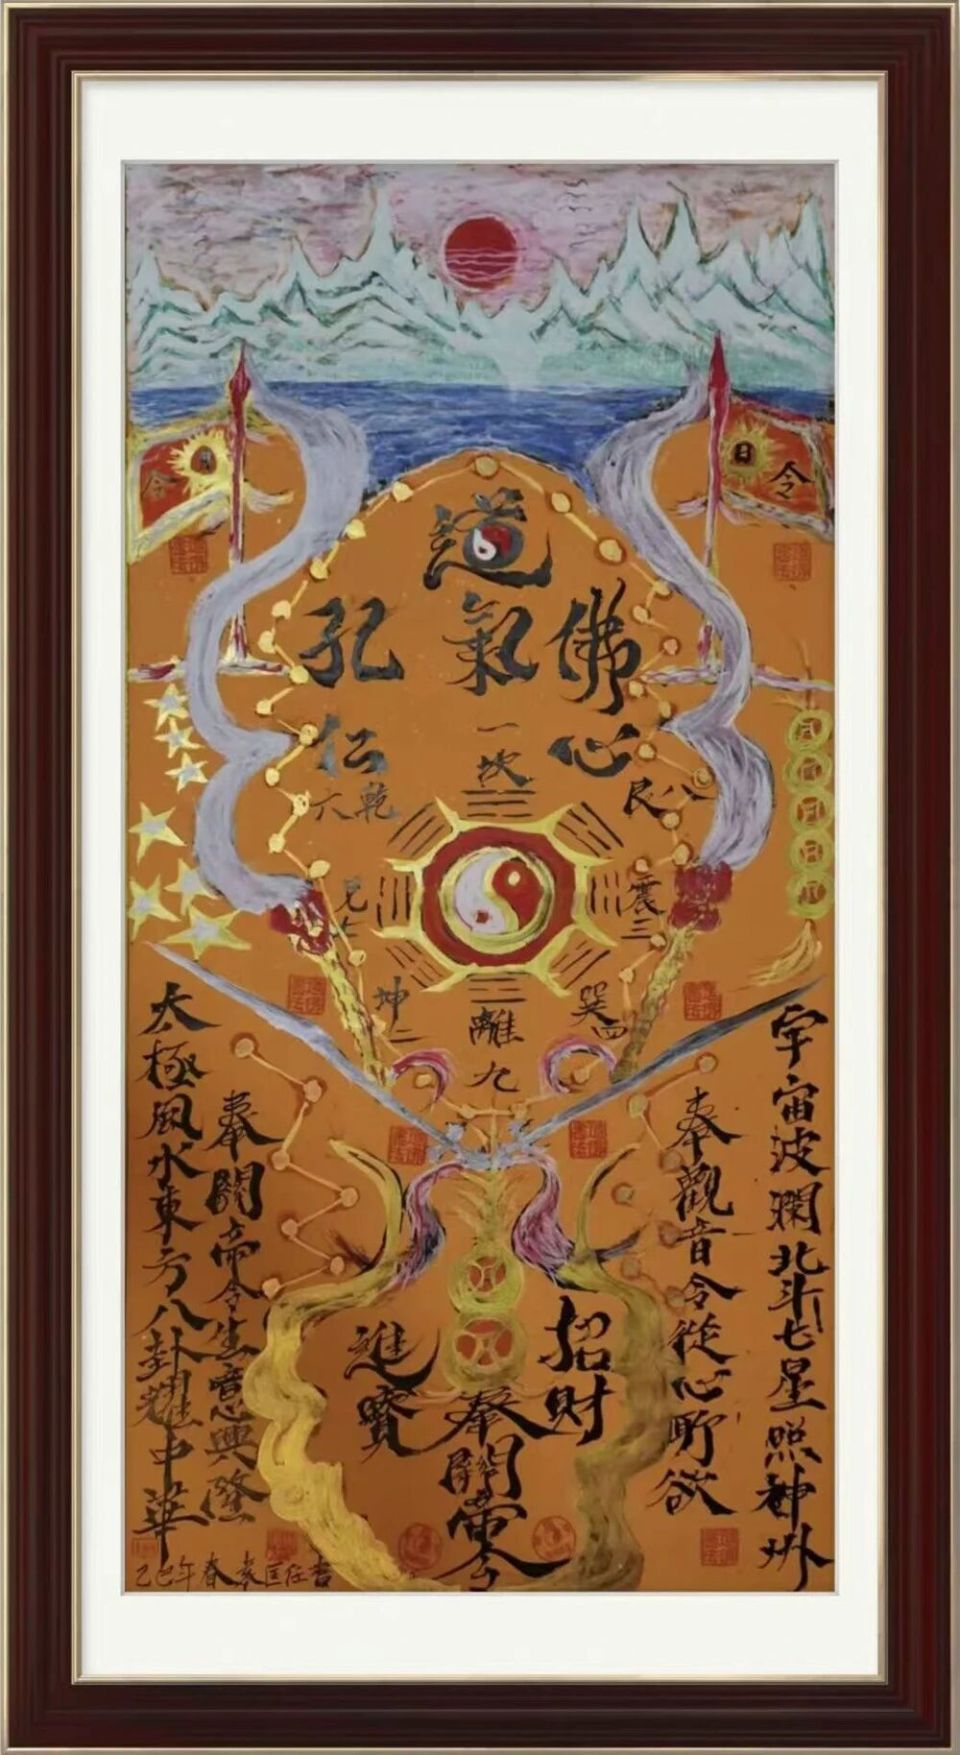 道
佛
氣
孔
心
仁
日 令
月 令
一坎
艮八
震三
巽四
離九
坤二
兌七
乾六
宇宙波瀾北斗七星照神州
奉觀音令從心所欲
招財
進寶
奉關帝令生意興隆
太極風水東方八卦耀中華
乙巳年春